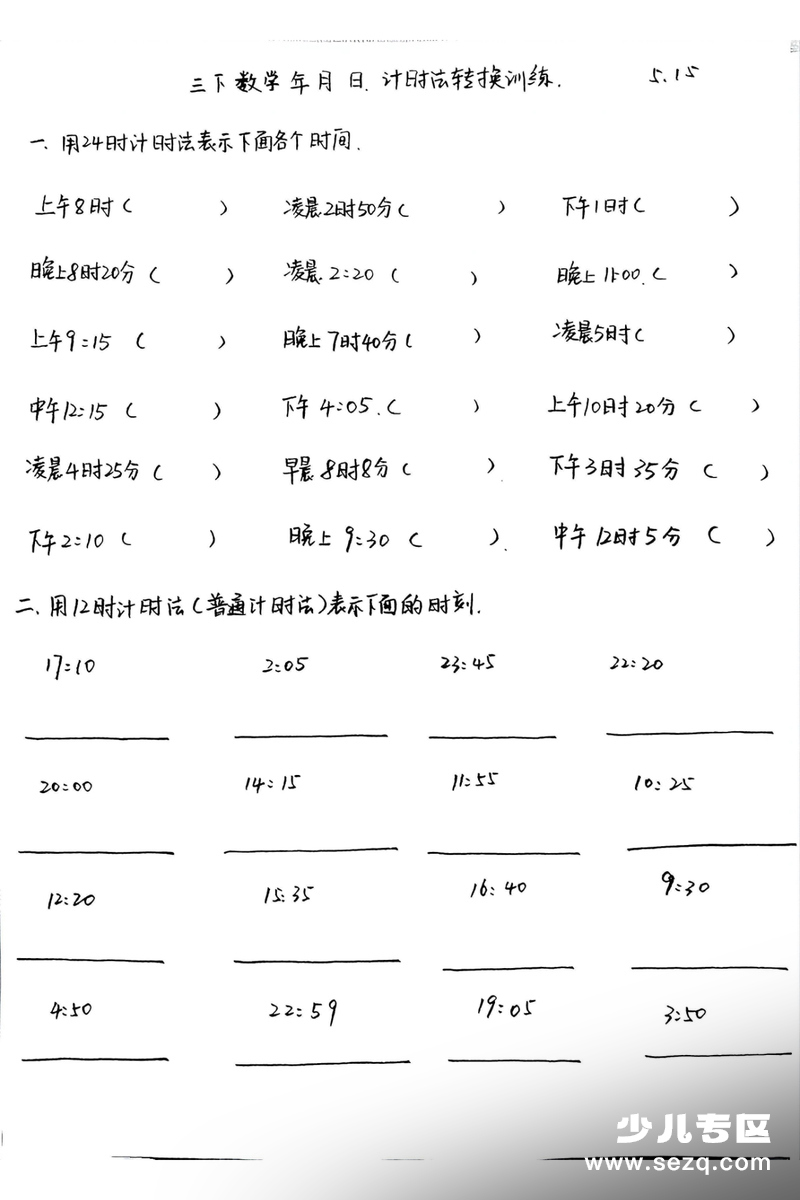 三下数学年月日.计时法转换训练. 5.15
一、用24时计时法表示下面各个时间.
上午8时( ) 凌晨2时50分( ) 下午1时( )
晚上8时20分( ) 凌晨2:20 ( ) 晚上11:00.( )
上午9:15 ( ) 晚上7时40分( ) 凌晨5时( )
中午12:15 ( ) 下午 4:05.( ) 上午10时20分( )
凌晨4时25分( ) 早晨8时8分( ) 下午3时35分 ( )
下午2:10 ( ) 晚上 9:30 ( ) 中午12时5分 ( )
二、用12时计时法(普通计时法)表示下面的时刻.
17:10 2:05 23:45 22:20
20:00 14:15 11:55 10:25
12:20 15:35 16:40 9:30
4:50 22:59 19:05 3:50
少儿专区
www.sezq.com